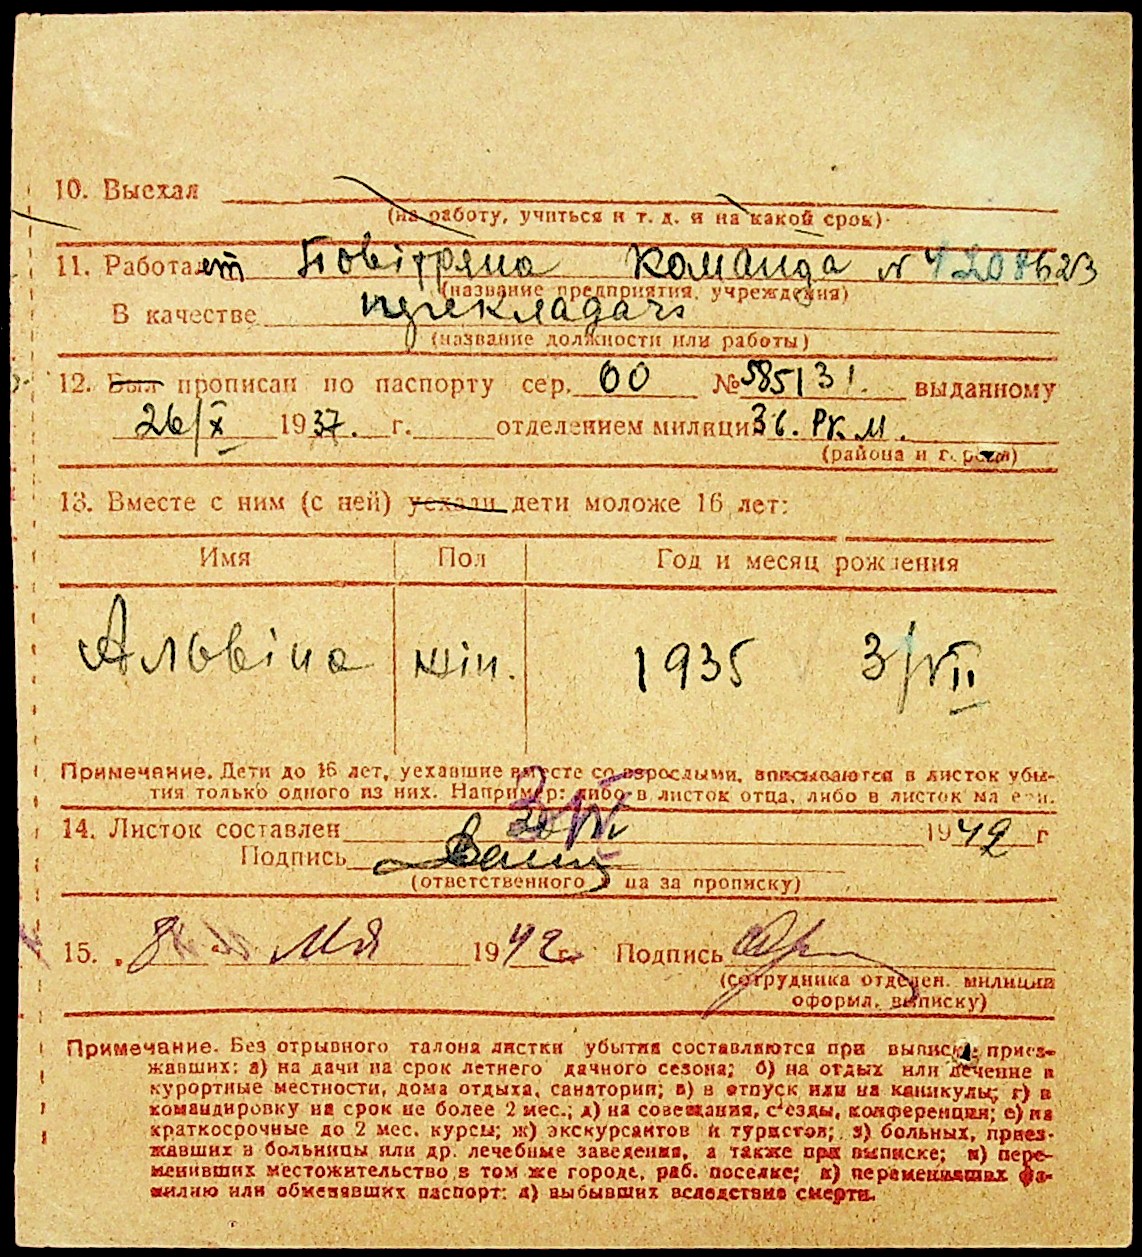 10. Выехал
(на работу, учиться и т. д. и на какой срок)
11. Работает Повітряна команда № 4208623
(название предприятия, учреждения)
В качестве перекладач
(название должности или работы)
12. Был прописан по паспорту сер. 00 № 585131. выданному
26/X 1937. г. отделением милиции 36. РК.М.
(района и города)
13. Вместе с ним (с ней) уехали дети моложе 16 лет:
Имя Пол Год и месяц рождения
Альвіна жін. 1935 3/VII
Примечание. Дети до 16 лет, уехавшие вместе со взрослыми, вписываются в листок убы-
тия только одного из них. Например: либо в листок отца, либо в листок матери.
14. Листок составлен 1942 г
Подпись
(ответственного лица за прописку)
15. „8 Мая 1942 г. Подпись
(сотрудника отделен. милиции
оформл. выписку)
Примечание. Без отрывного талона листки убытия составляются при выписке приез-
жавших: а) на дачи на срок летнего дачного сезона; б) на отдых или лечение в
курортные местности, дома отдыха, санатории; в) в отпуск или на каникулы; г) в
командировку на срок не более 2 мес.; д) на совещания, с'езды, конференции; е) на
краткосрочные до 2 мес. курсы; ж) экскурсантов и туристов; з) больных, приез-
жавших в больницы или др. лечебные заведения, а также при выписке; и) пере-
менивших местожительство в том же городе, раб. поселке; к) переменивших фа-
милию или обменявших паспорт; л) выбывших вследствие смерти.